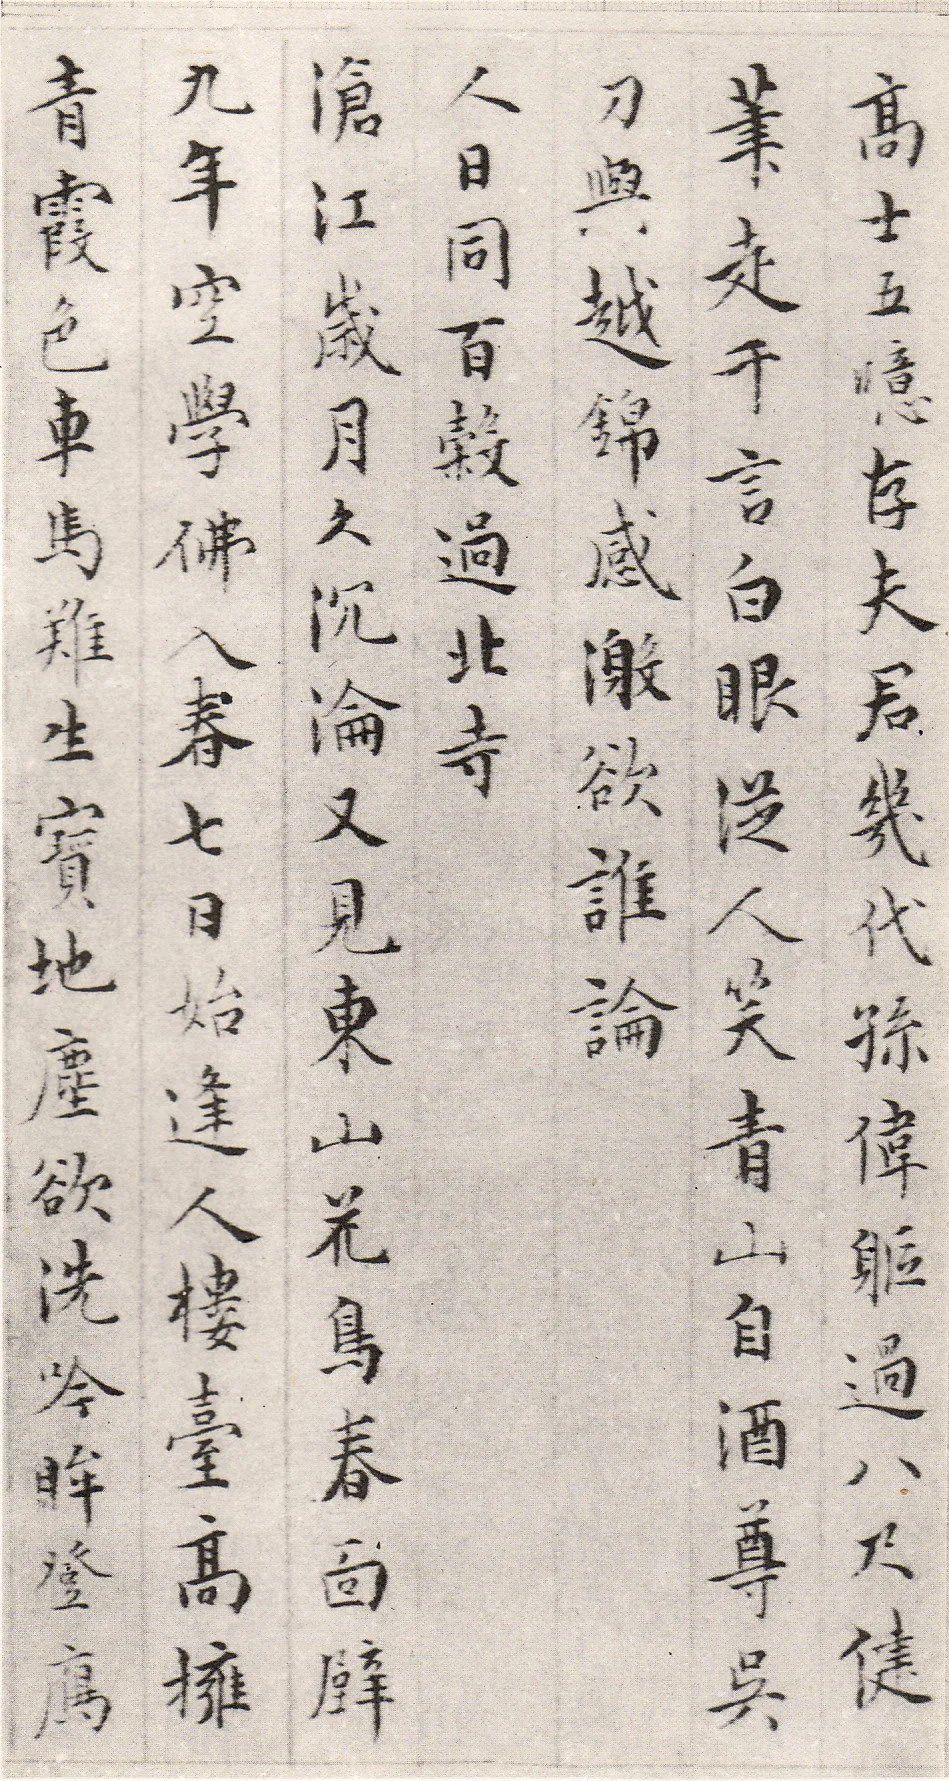 高士五噫存夫君幾代孫偉軀過八尺健
筆走千言白眼從人笑青山自酒尊吳
刀與越錦感激欲誰論
人日同百穀過北寺
滄江歲月久沉淪又見東山花鳥春面壁
九年空學佛入春七日始逢人樓臺高擁
青霞色車馬難生寶地塵欲洗吟眸登鴈